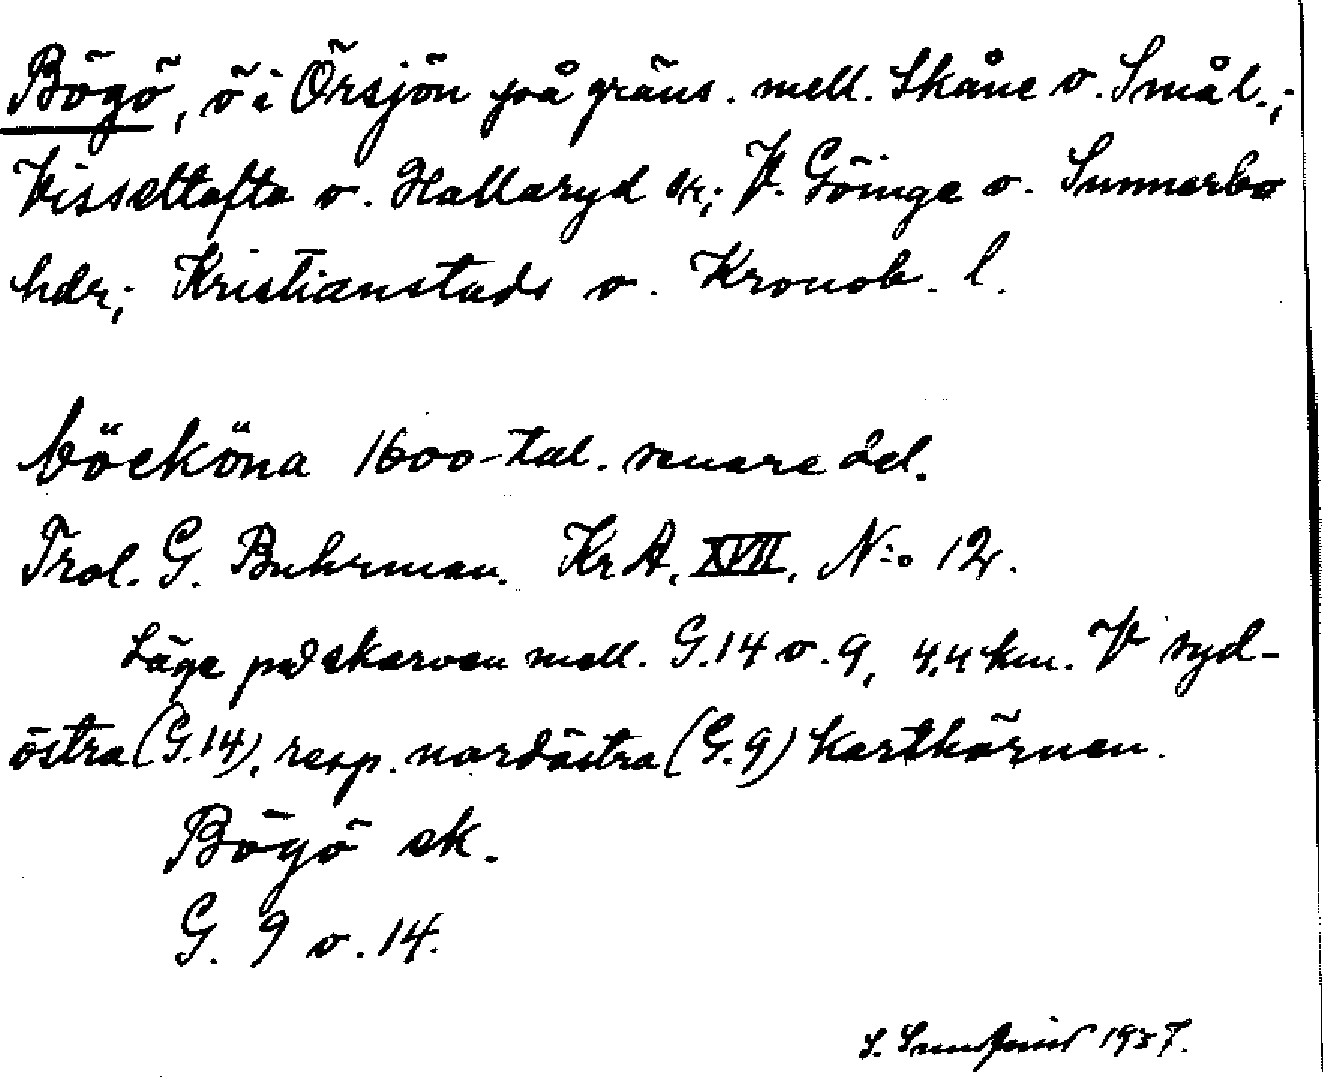 Bögö, ö i Örsjön på gräns. mell. Skåne o. Smål.;
Visseltofta o. Hallaryd sk; V. Göinge o. Sunnerbo
hdr; Kristianstads o. Kronob. l.
böeköna 1600-tal. senare del.
Trol. G. Buhrman. KrA, XVII, N:o 12.
Läge på skarven mell. G.14 o. 9, 4,4 km. V syd-
östra (G.14), resp. nordöstra (G.9) karthörnen.
Bögö sk.
G. 9 o. 14.
S. 1937.